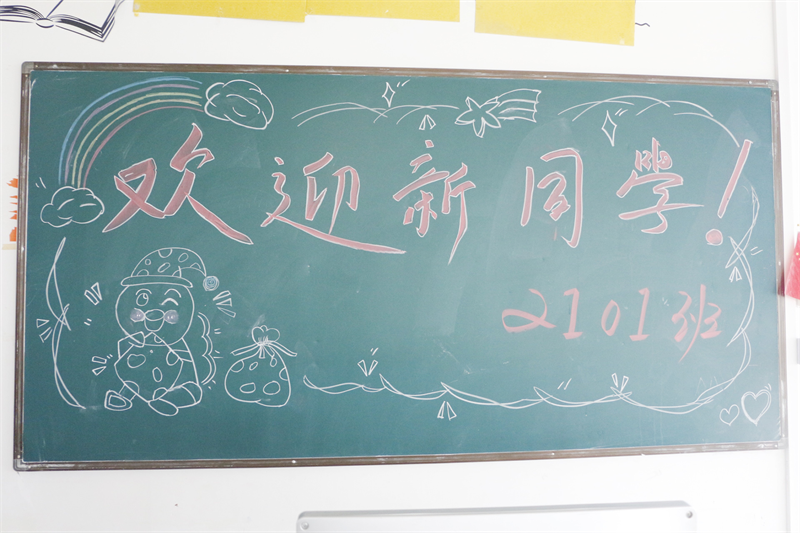 欢迎新同学！
2101班